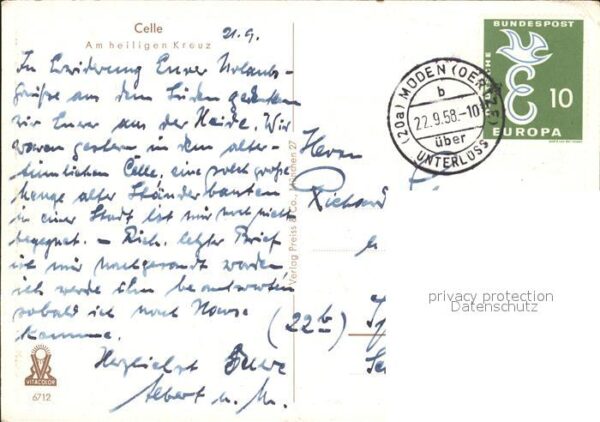 Celle
Am heiligen Kreuz
21.9.
In Erwiderung Eurer Urlaubs-
grüße aus dem Süden gedenken
wir Eurer aus der Heide. Wir
waren gestern in dem alter-
tümlichen Celle, eine solch große
Menge alter Ständerbauten
in einer Stadt ist mir noch nicht
begegnet. – Rich. letzter Brief
ist mir nachgesandt worden
ich werde ihn beantworten
sobald ich nach Hause
komme.
Herzlichst Eure
Albert u. M.
VITACOLOR
6712
Verlag Preiss & Co., München 27
DEUTSCHE
BUNDESPOST
10
EUROPA
(20a) MÜDEN (OERTZE)
b
22.9.58.-10
über
UNTERLÜSS
Herrn
Richard
(22b)
privacy protection
Datenschutz